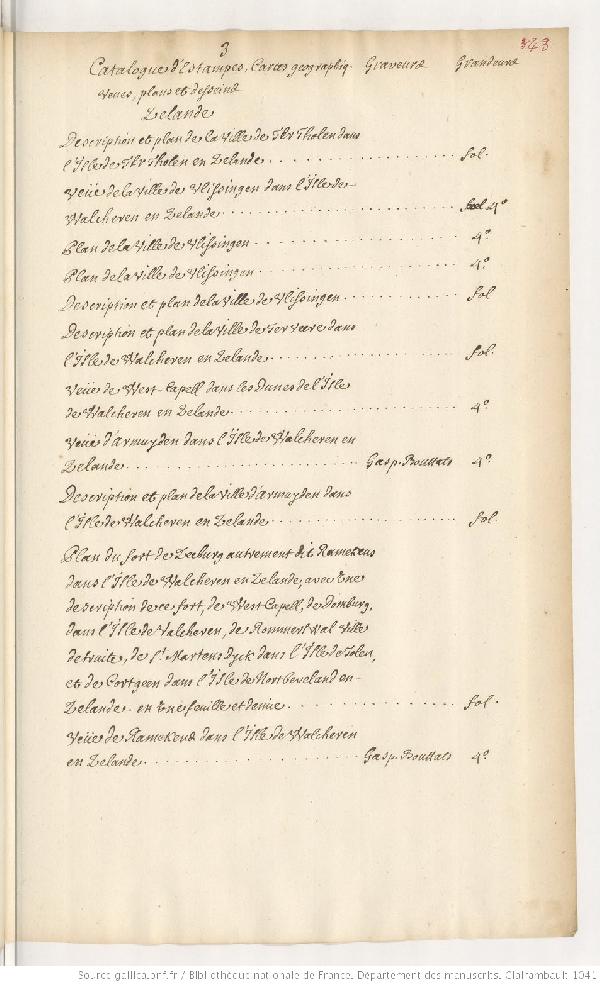 3
343
Catalogue d'Estampes, Cartes geographiq. Graveurs Grandeurs
Veues, plans et desseins
Zelande
Description et plan de la Ville de Ter Tholen dans
l'Isle de Ter Tholen en Zelande fol.
Veüe de la Ville de Vlissingen dans l'Isle de
Walcheren en Zelande 4º
Plan de la Ville de Vlissingen 4º
Plan de la Ville de Vlissingen 4º
Description et plan de la Ville de Vlissingen fol
Description et plan de la Ville de Terveere dans
l'Isle de Walcheren en Zelande fol.
Veüe de West-Capell dans les Dunes de l'Isle
de Walcheren en Zelande 4º
Veüe d'armuyden dans l'Isle de Walcheren en
Zelande Gasp. Bouttats 4º
Description et plan de la Ville d'armuyden dans
l'Isle de Walcheren en Zelande fol.
Plan du fort de Zeeburg autrement dit Ramekens
dans l'Isle de Walcheren en Zelande, avec une
description de ce fort, de West Capell, de Domburg,
dans l'Isle de Valcheren, de Rommerswal Ville
detruite, de St Martensdyck dans l'Isle de Tolen,
et de Cortgeen dans l'Isle de Nortbeveland en
Zelande en une feuille et demie fol.
Veüe de Ramekens dans l'Isle de Walcheren
en Zelande Gasp. Bouttats 4º
Source gallica.bnf.fr / Bibliothèque nationale de France. Département des manuscrits. Clairambault 1041